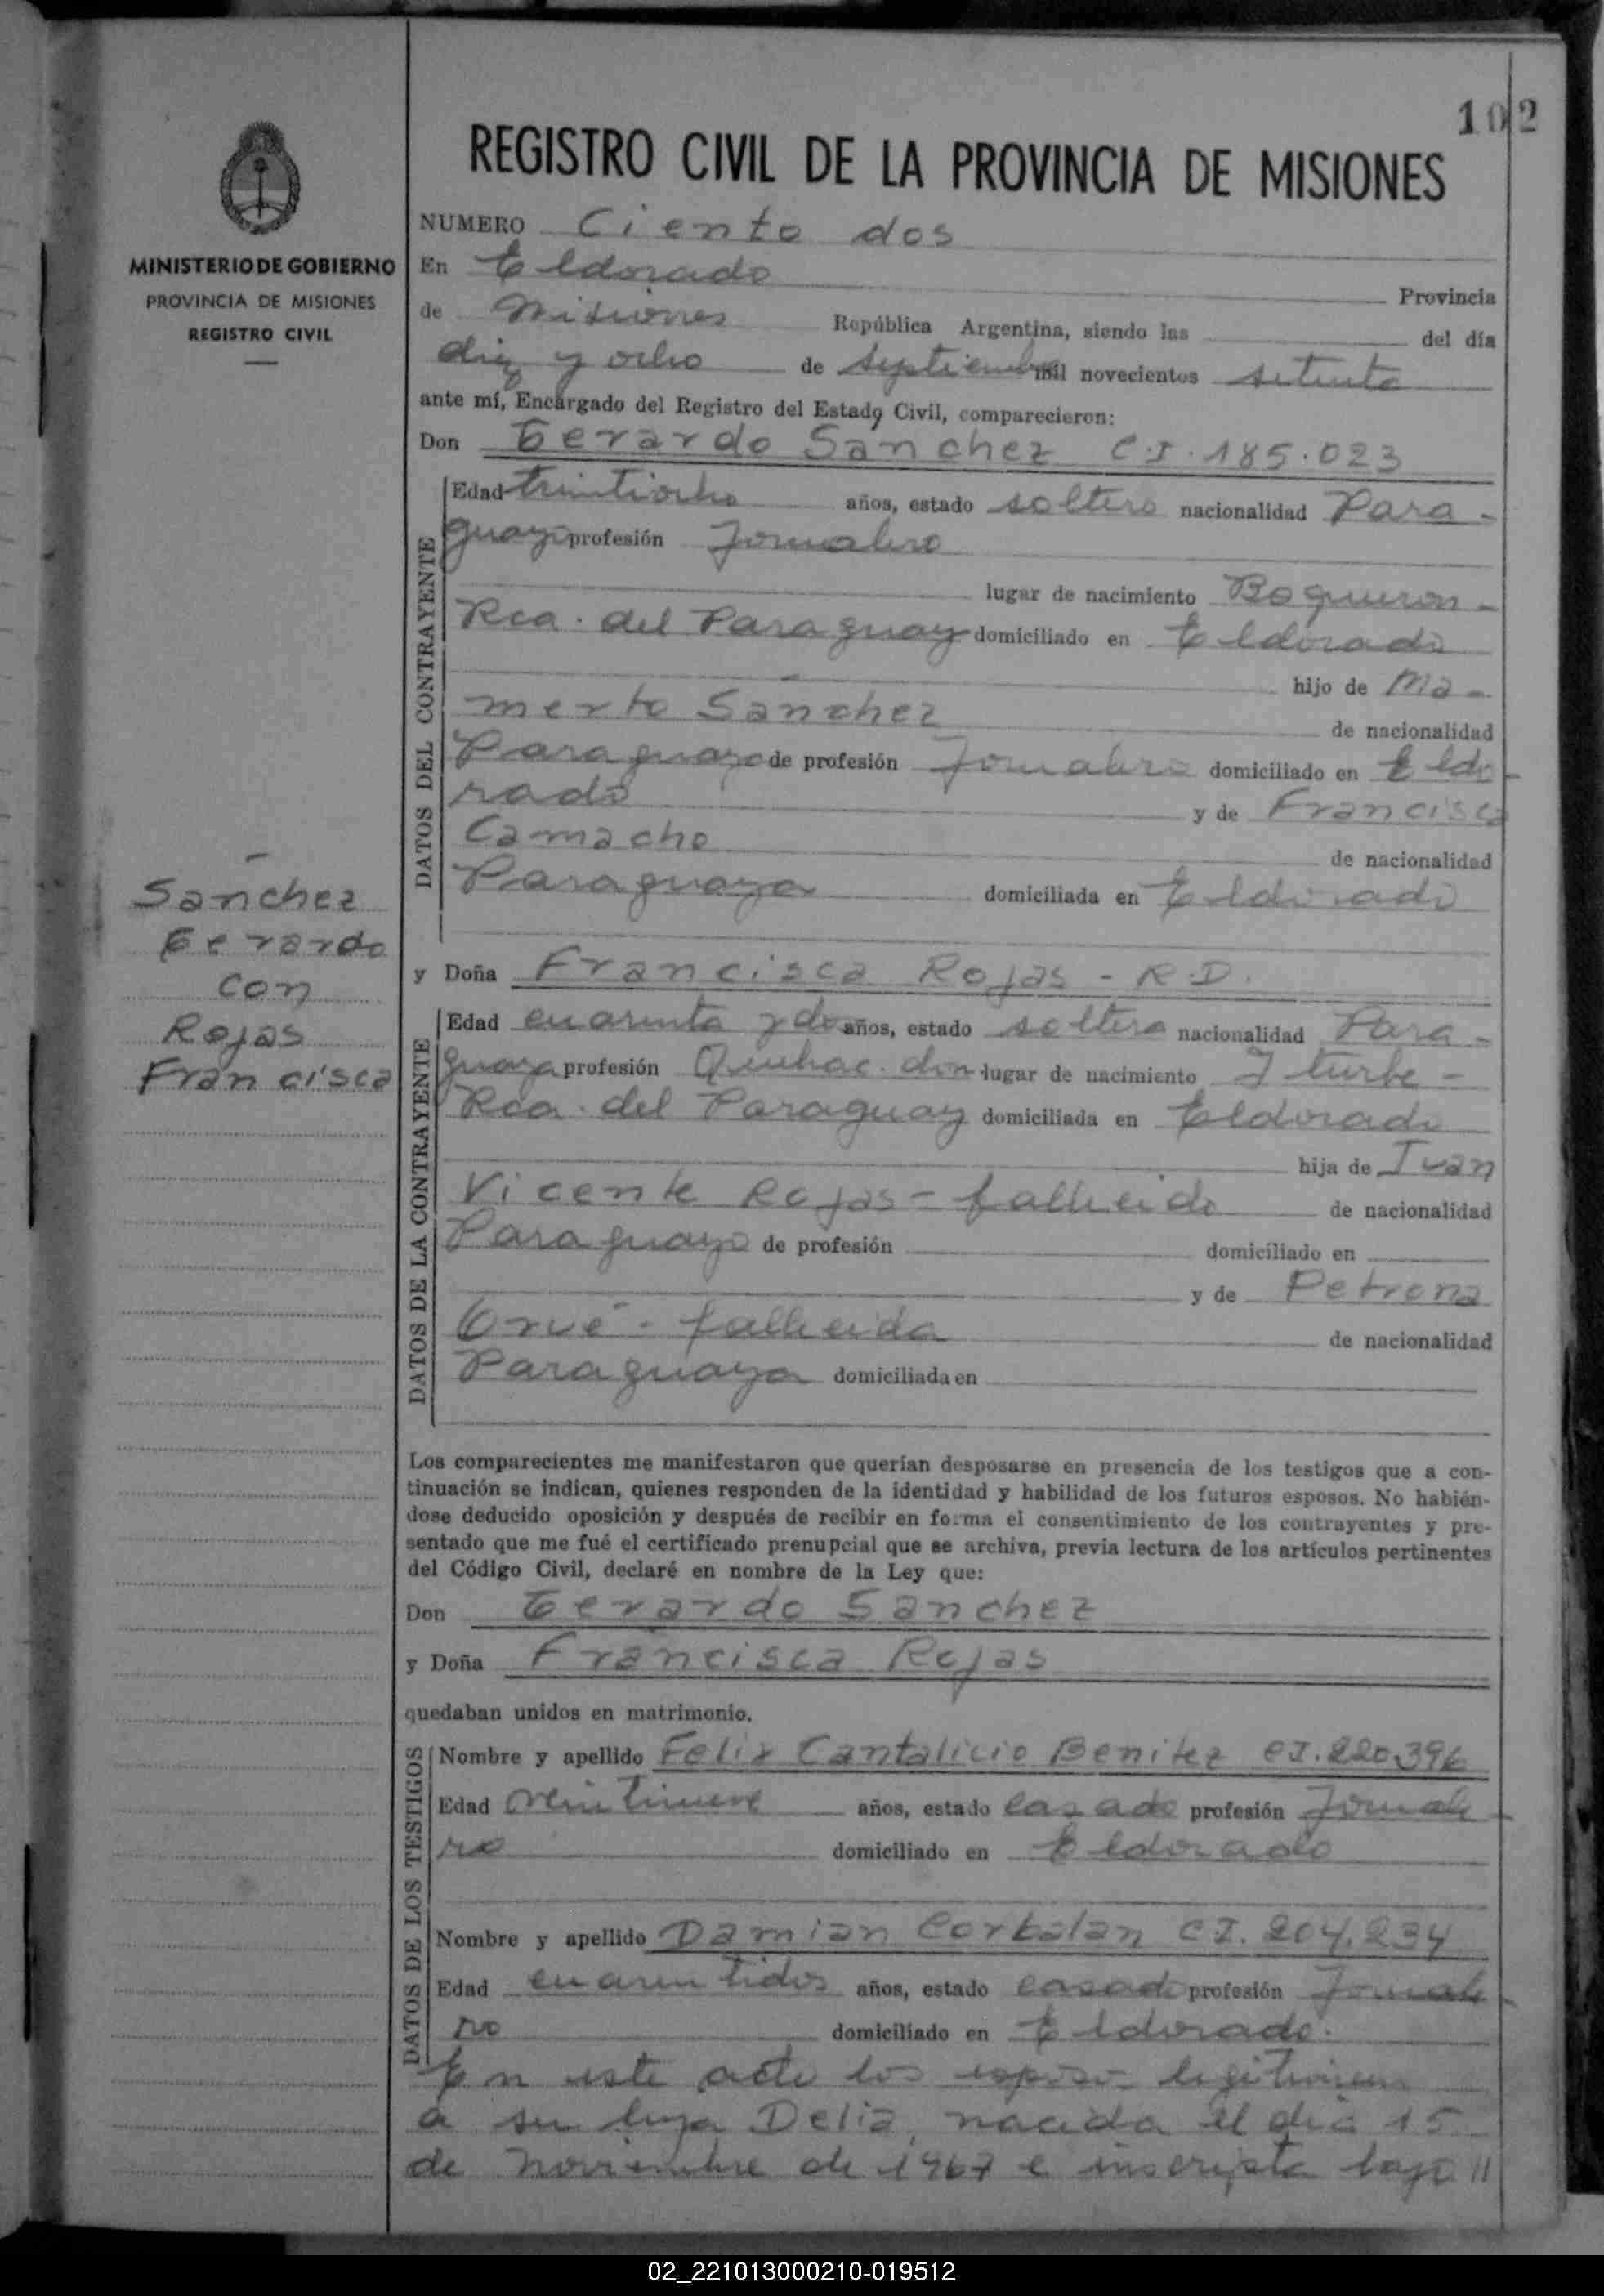 102
REGISTRO CIVIL DE LA PROVINCIA DE MISIONES
MINISTERIO DE GOBIERNO
PROVINCIA DE MISIONES
REGISTRO CIVIL
NUMERO Ciento dos
En Eldorado Provincia
de Misiones República Argentina, siendo las del día
diez y ocho de septiembre mil novecientos setenta
ante mí, Encargado del Registro del Estado Civil, comparecieron:
Don Gerardo Sanchez C.I. 185.023
DATOS DEL CONTRAYENTE
Edad treintiocho años, estado soltero nacionalidad Para-
guayo profesión Jornalero
lugar de nacimiento Boqueron-
Rca. del Paraguay domiciliado en Eldorado
hijo de Ma-
merto Sánchez de nacionalidad
Paraguayo de profesión Jornalero domiciliado en Eldo-
rado y de Francisca
Camacho de nacionalidad
Paraguaya domiciliada en Eldorado
Sánchez
Gerardo
con
Rojas
Francisca
y Doña Francisca Rojas - R.D.
DATOS DE LA CONTRAYENTE
Edad cuarenta y dos años, estado soltera nacionalidad Para-
guaya profesión Quehac. dom lugar de nacimiento Iturbe-
Rca. del Paraguay domiciliada en Eldorado
hija de Juan
Vicente Rojas - fallecido de nacionalidad
Paraguayo de profesión domiciliado en
y de Petrona
Orué - fallecida de nacionalidad
Paraguaya domiciliada en
Los comparecientes me manifestaron que querían desposarse en presencia de los testigos que a con-
tinuación se indican, quienes responden de la identidad y habilidad de los futuros esposos. No habién-
dose deducido oposición y después de recibir en forma el consentimiento de los contrayentes y pre-
sentado que me fué el certificado prenupcial que se archiva, previa lectura de los artículos pertinentes
del Código Civil, declaré en nombre de la Ley que:
Don Gerardo Sanchez
y Doña Francisca Rojas
quedaban unidos en matrimonio.
DATOS DE LOS TESTIGOS
Nombre y apellido Felix Cantalicio Benitez CI. 220.396
Edad veintinueve años, estado casado profesión Jornale-
ro domiciliado en Eldorado
Nombre y apellido Damian Corbalan CI. 204.234
Edad cuarentidos años, estado casado profesión Jornale-
ro domiciliado en Eldorado.
En este acto los esposos legitiman
a su hija Delia, nacida el dia 15
de noviembre de 1967 e inscripta bajo //
02_221013000210-019512